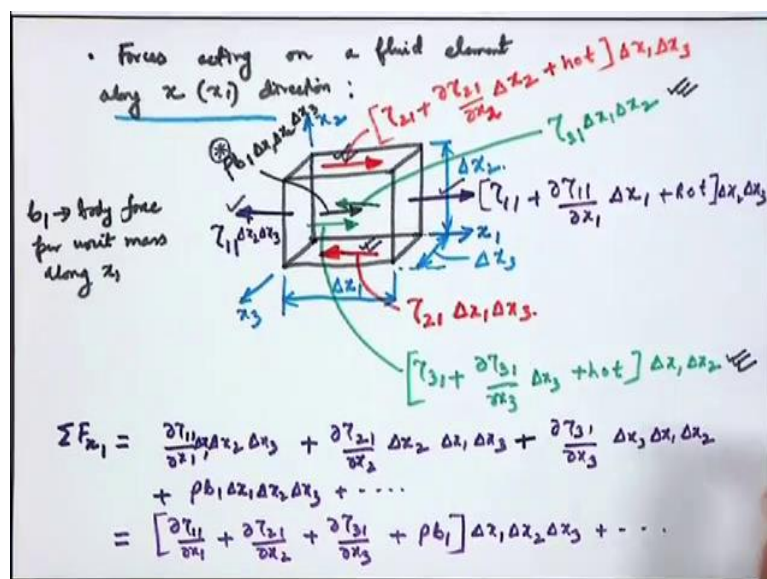 • Forces acting on a fluid element
along x (x₁) direction :
[τ₂₁ + ∂τ₂₁/∂x₂ Δx₂ + hot] Δx₁Δx₃
x₂
ρb₁Δx₁Δx₂Δx₃
τ₃₁ Δx₁Δx₂
Δx₂
b₁ → body force
per unit mass
along x₁
τ₁₁Δx₂Δx₃
[τ₁₁ + ∂τ₁₁/∂x₁ Δx₁ + hot] Δx₂Δx₃
x₁
Δx₃
Δx₁
x₃
τ₂₁ Δx₁Δx₃.
[τ₃₁ + ∂τ₃₁/∂x₃ Δx₃ + hot] Δx₁Δx₂
ΣFx₁ = ∂τ₁₁/∂x₁ Δx₁Δx₂Δx₃ + ∂τ₂₁/∂x₂ Δx₂ Δx₁Δx₃ + ∂τ₃₁/∂x₃ Δx₃Δx₁Δx₂
+ ρb₁Δx₁Δx₂Δx₃ + ....
= [∂τ₁₁/∂x₁ + ∂τ₂₁/∂x₂ + ∂τ₃₁/∂x₃ + ρb₁] Δx₁Δx₂Δx₃ + ...